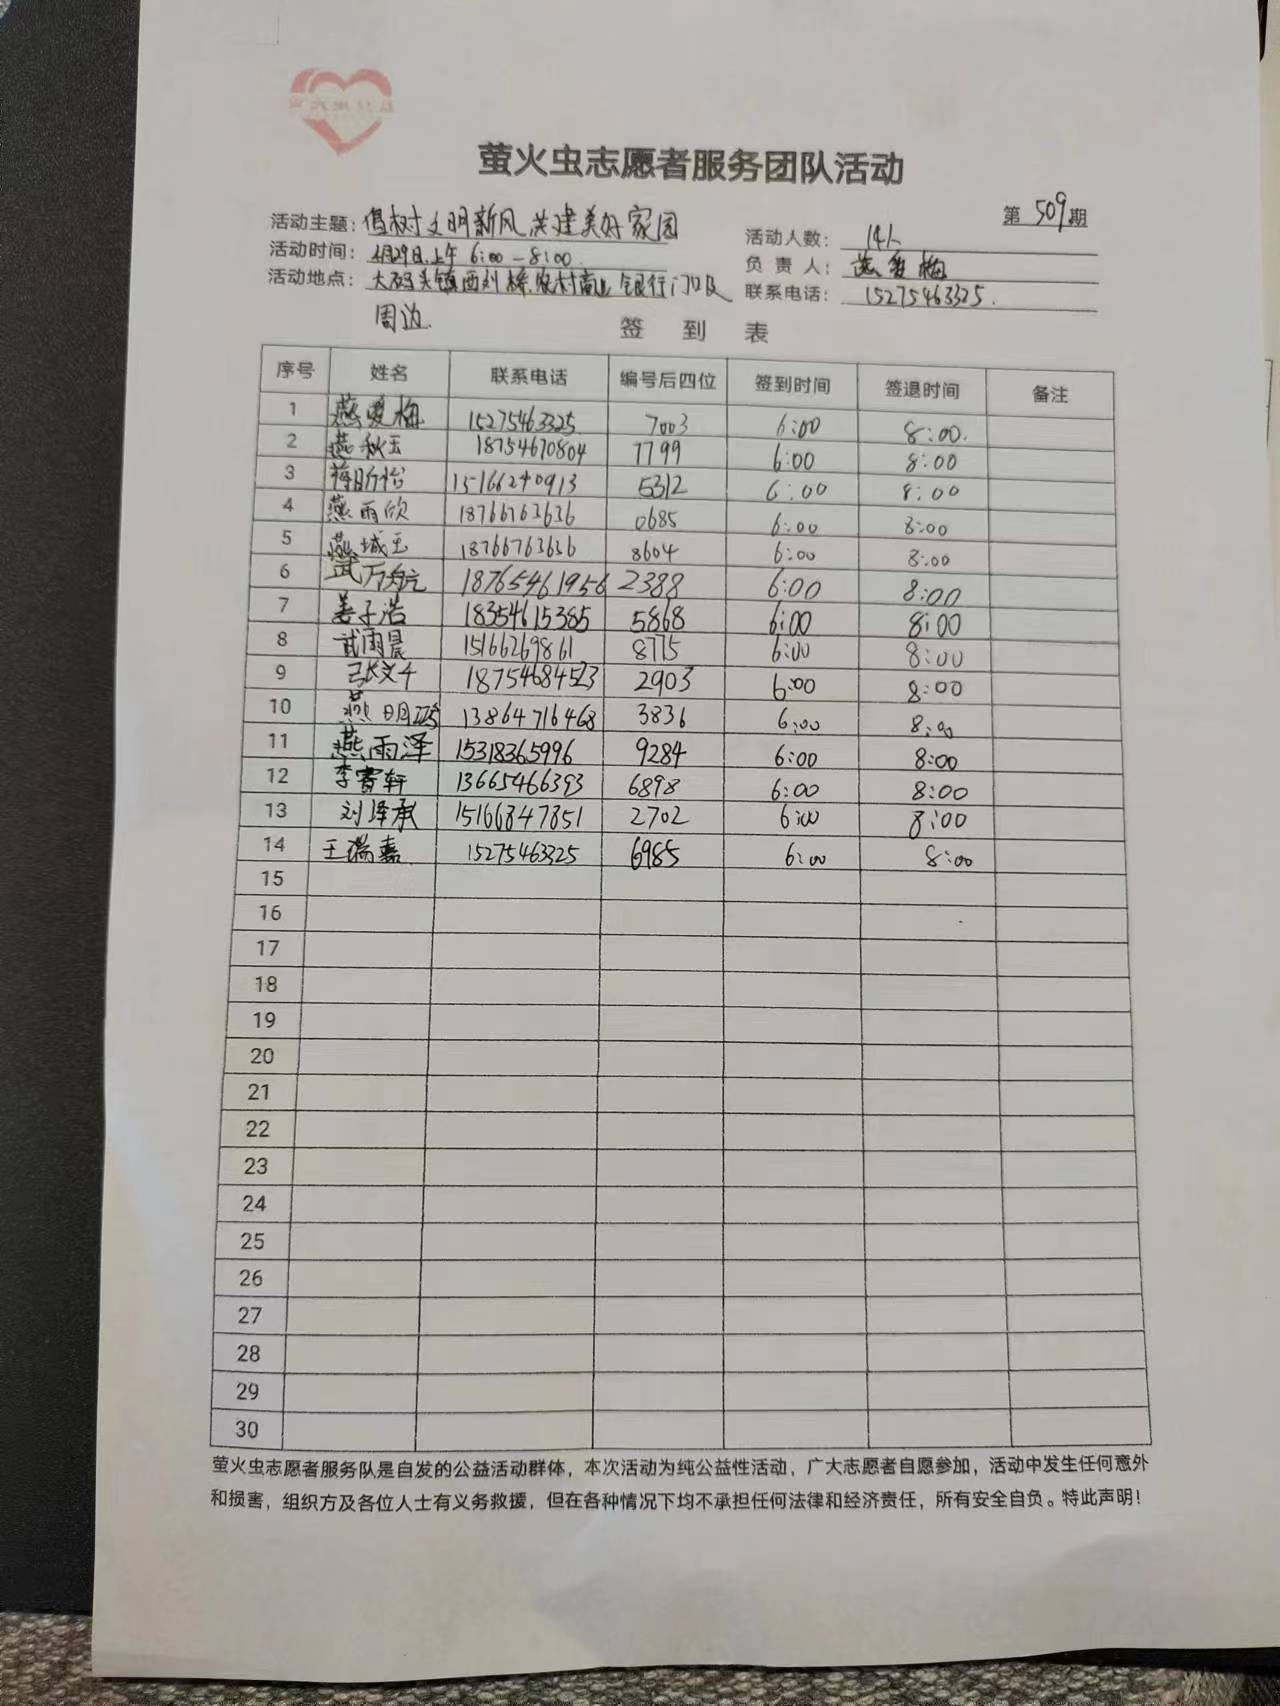 萤火虫志愿者服务团队活动
第509期
活动主题：倡树文明新风 共建美好家园
活动人数：14人
活动时间：4月29日上午 6:00-8:00
负责人：燕爱梅
活动地点：大码头镇西刘桥农村商业银行门口及
周边
联系电话：15275463325
签到表
序号 姓名 联系电话 编号后四位 签到时间 签退时间 备注
1 燕爱梅 15275463325 7003 6:00 8:00
2 燕秋玉 18754670804 7799 6:00 8:00
3 15166240913 5312 6:00 8:00
4 燕雨欣 18766763636 0685 6:00 8:00
5 燕城玉 18766763636 8604 6:00 8:00
6 武 18765461956 2388 6:00 8:00
7 姜子浩 18354615385 5868 6:00 8:00
8 武雨晨 15166269861 8775 6:00 8:00
9 张文千 18754684523 2903 6:00 8:00
10 燕明 13864716468 3836 6:00 8:00
11 燕雨泽 15318365996 9284 6:00 8:00
12 李睿轩 13665466393 6898 6:00 8:00
13 刘泽承 15166847851 2702 6:00 8:00
14 王瑞嘉 15275463325 6985 6:00 8:00
15
16
17
18
19
20
21
22
23
24
25
26
27
28
29
30
萤火虫志愿者服务队是自发的公益活动群体，本次活动为纯公益性活动，广大志愿者自愿参加，活动中发生任何意外
和损害，组织方及各位人士有义务救援，但在各种情况下均不承担任何法律和经济责任，所有安全自负。特此声明！